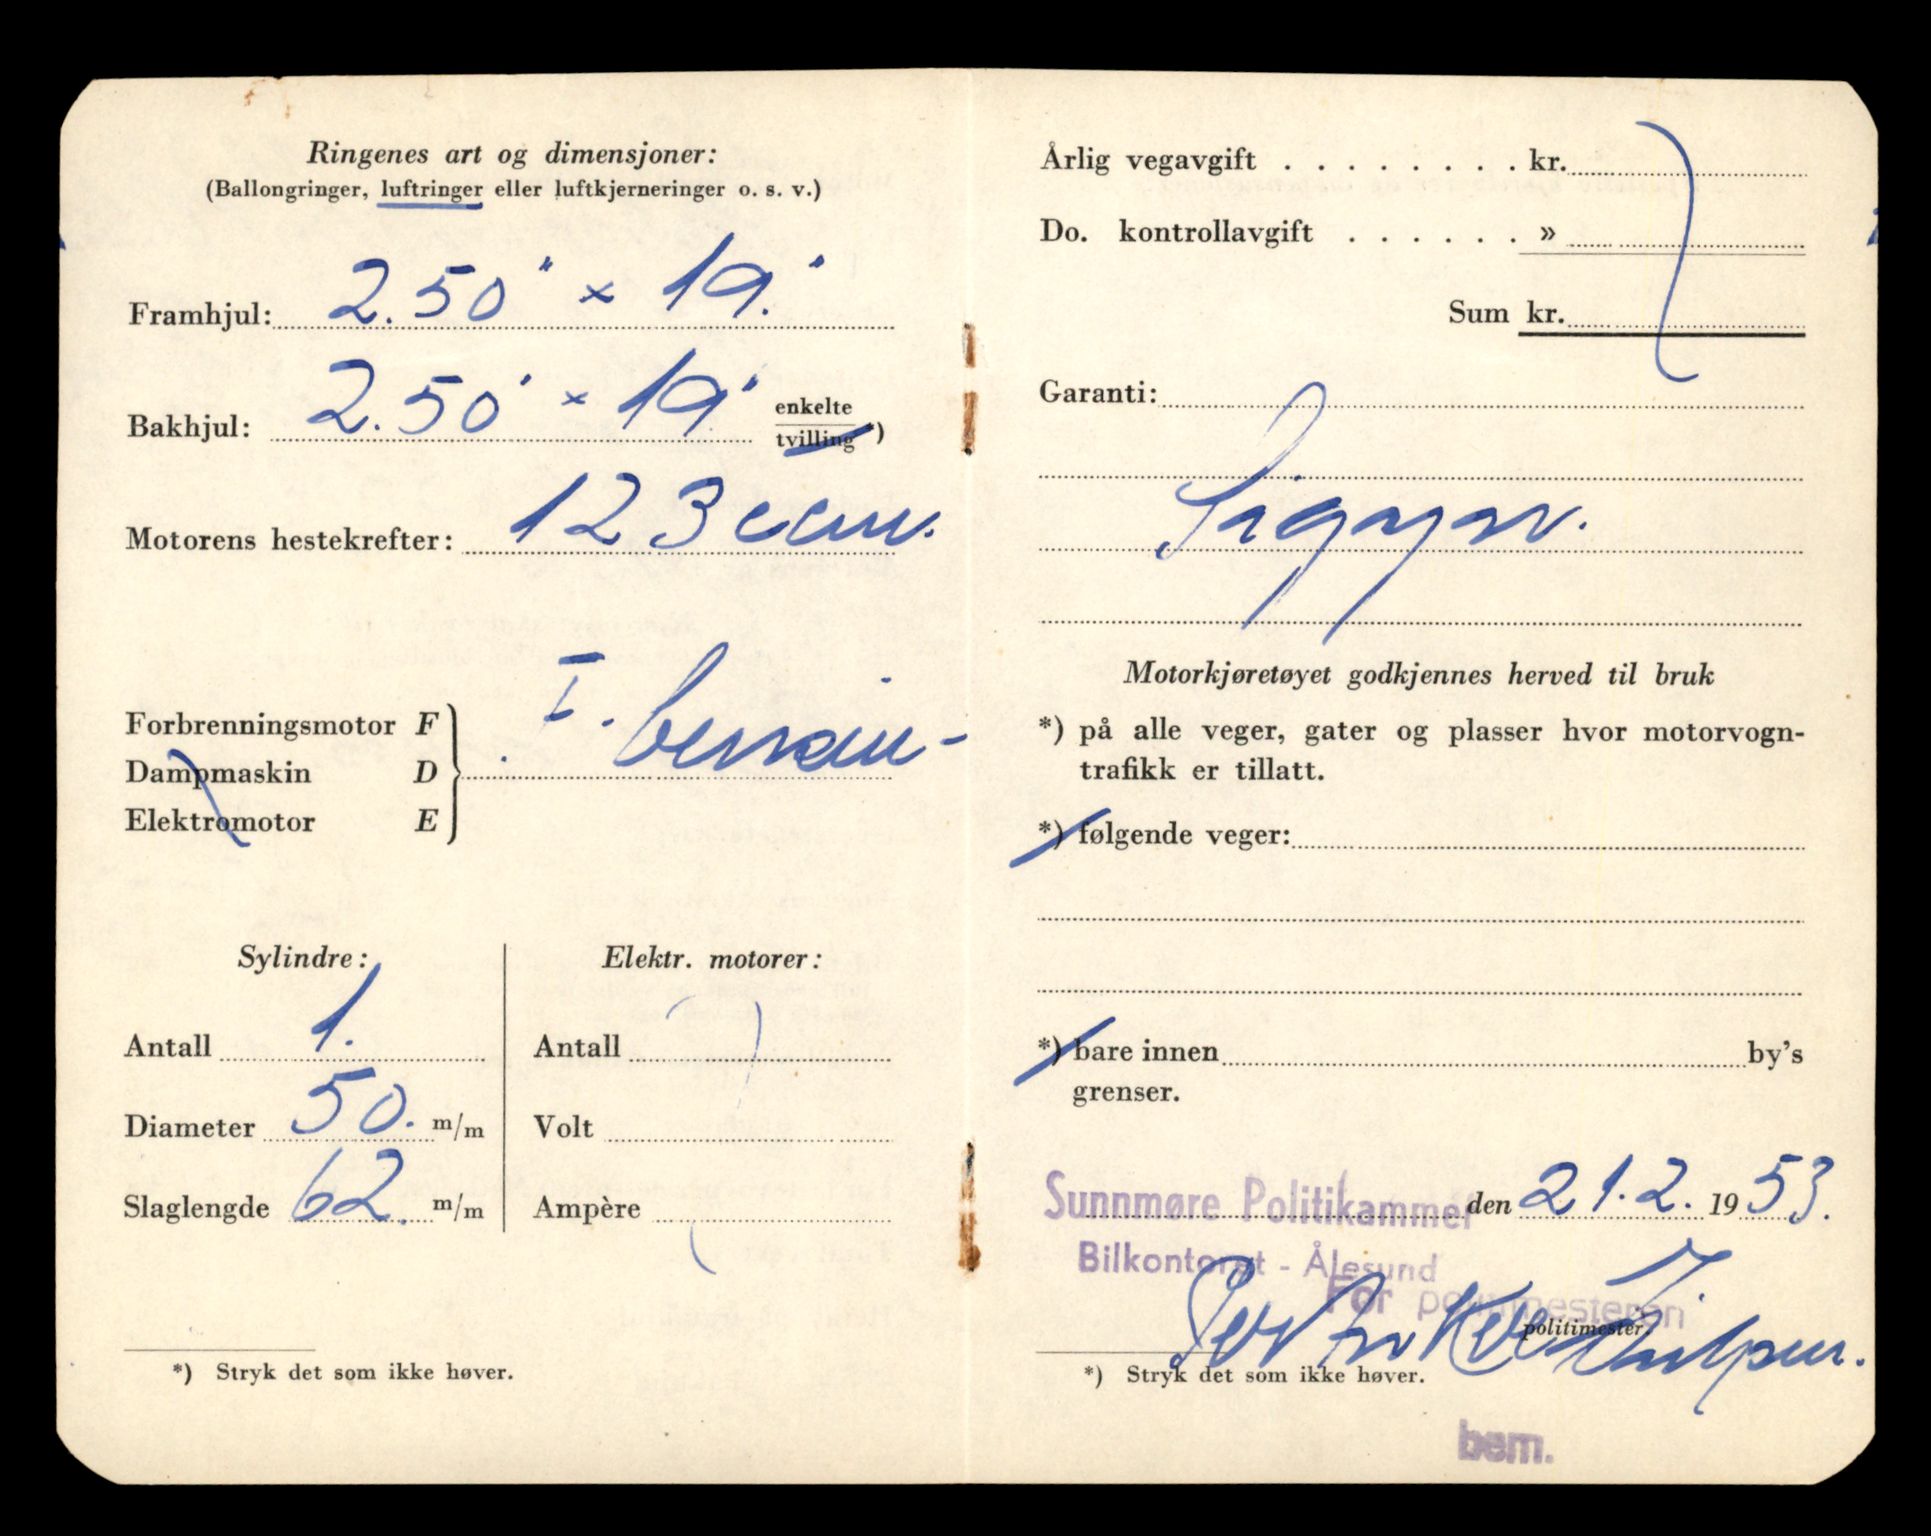 Ringenes art og dimensjoner:
(Ballongringer, luftringer eller luftkjerneringer o. s. v.)
Framhjul: 2.50" × 19"
Bakhjul: 2.50" × 19" enkelte
tvilling *)
Motorens hestekrefter: 123 ccm.
Forbrenningsmotor F
Dampmaskin D
Elektromotor E
F. bensin-
Sylindre:
Antall 1.
Diameter 50. m/m
Slaglengde 62. m/m
Elektr. motorer:
Antall
Volt
Ampère
*) Stryk det som ikke høver.
Årlig vegavgift . . . . . . . . kr.
Do. kontrollavgift . . . . . . »
Sum kr.
Garanti:
Motorkjøretøyet godkjennes herved til bruk
*) på alle veger, gater og plasser hvor motorvogn-
trafikk er tillatt.
*) følgende veger:
*) bare innen by's
grenser.
Sunnmøre Politikammer den 21.2. 1953.
Bilkontoret - Ålesund
For politimesteren
politimester.
*) Stryk det som ikke høver.
bem.